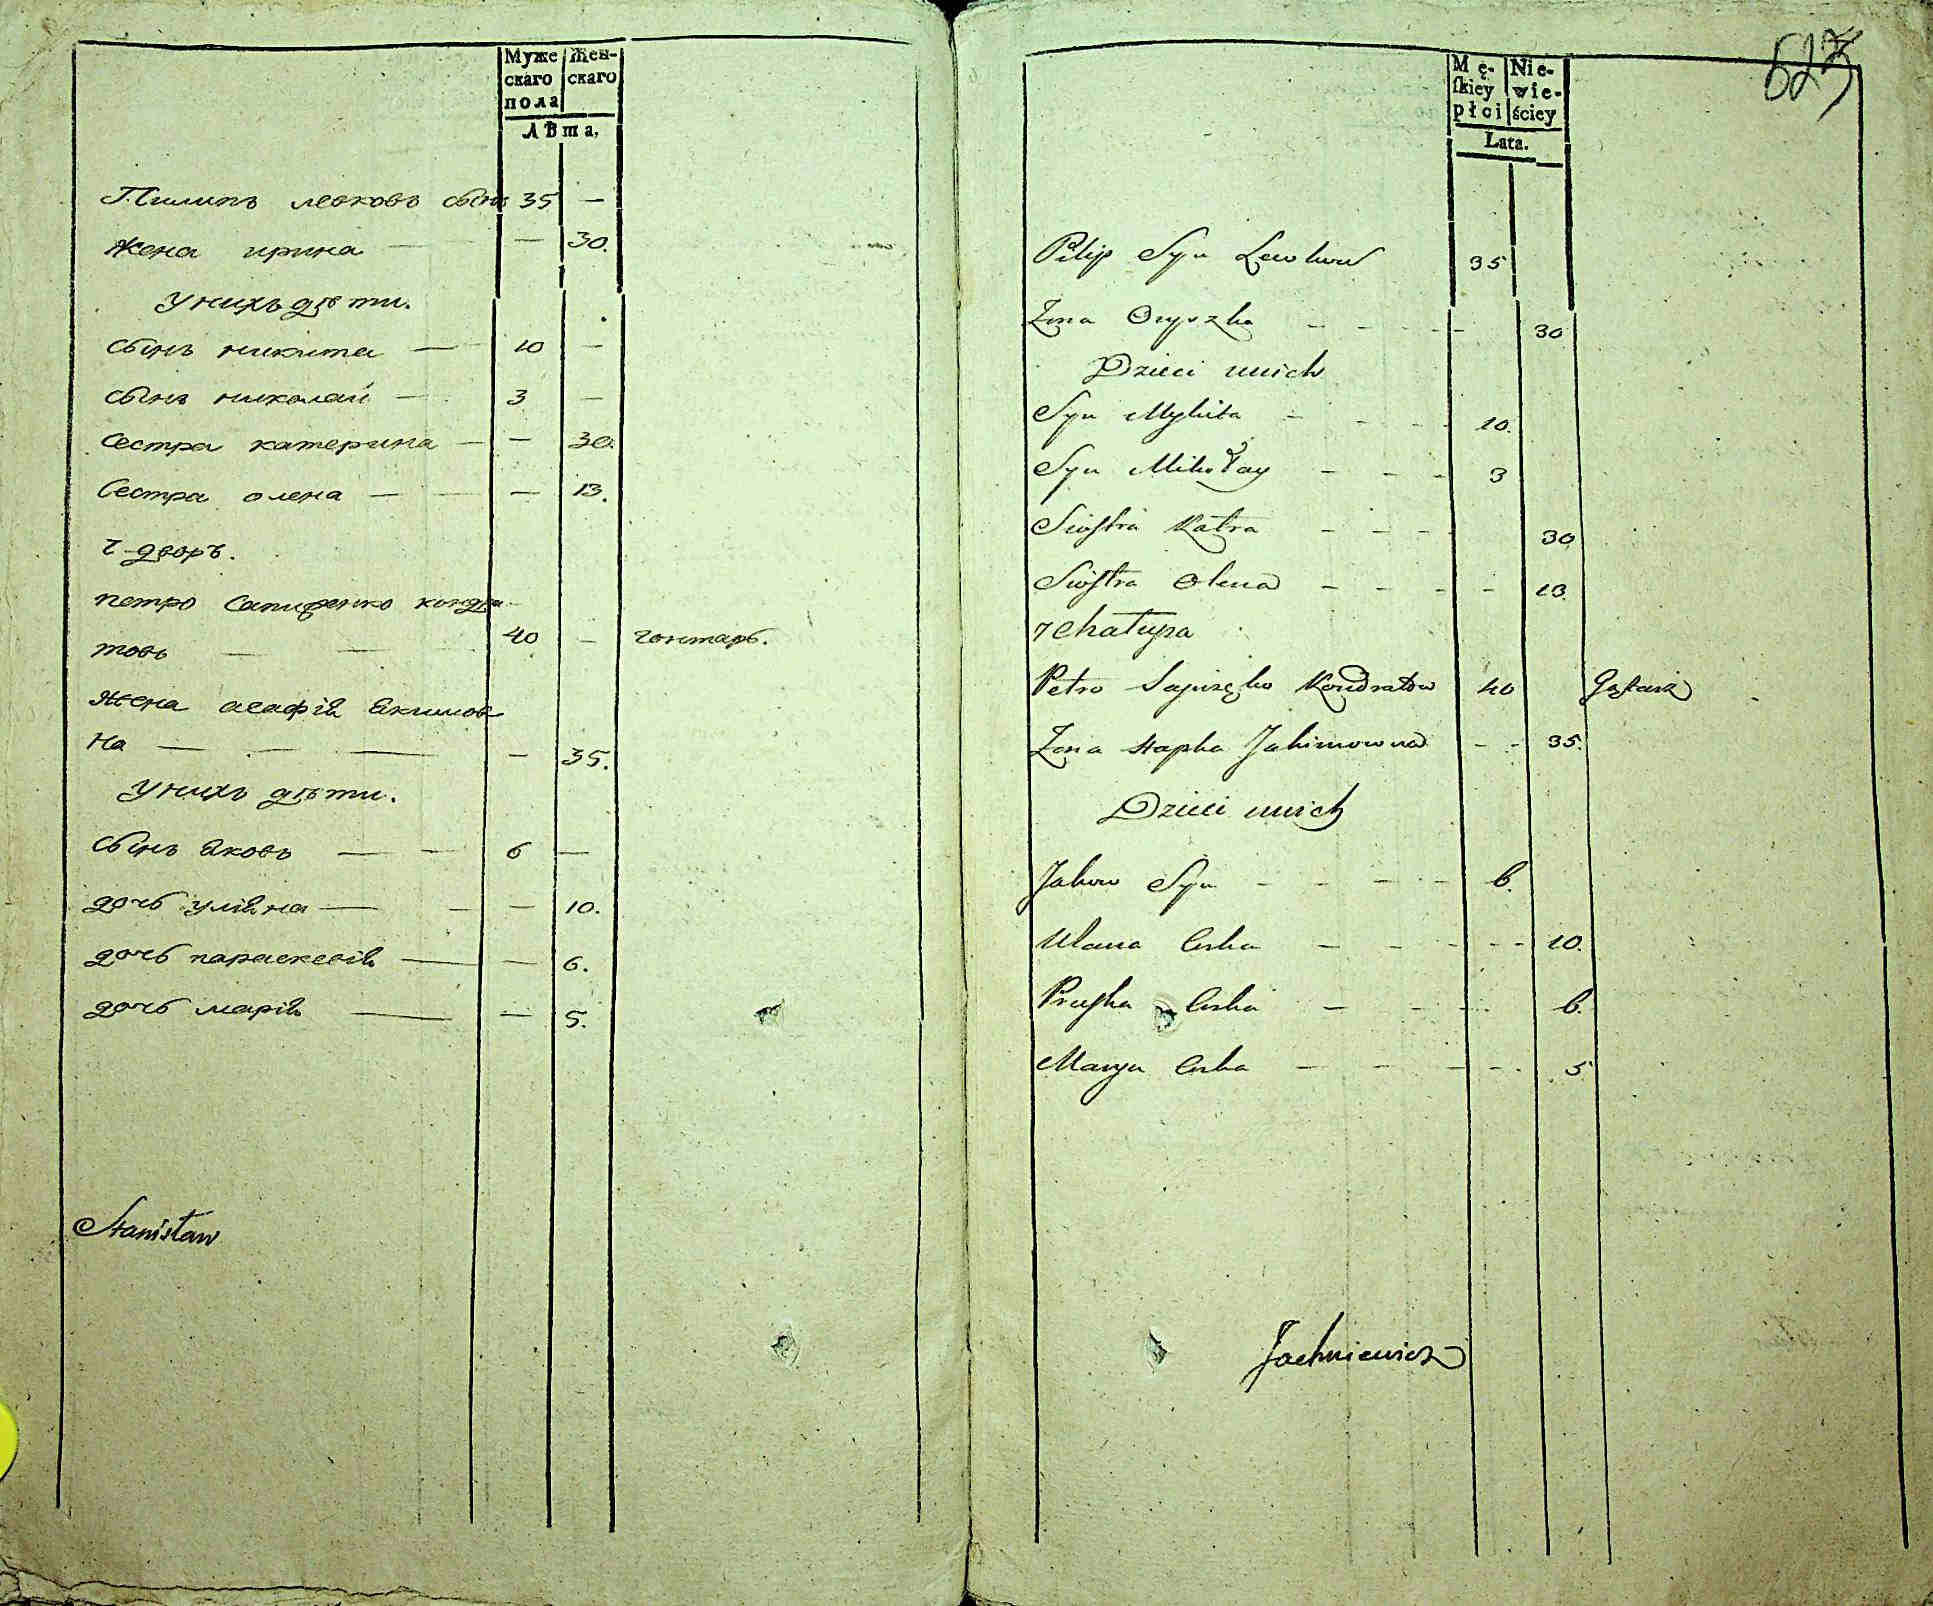 Муже Жен-
скаго скаго
пола
Лѣта,
Пилипъ левковъ сынъ 35 —
жена ирина — — 30.
у нихъ дѣти.
сынъ никита — 10 —
сынъ николай — 3 —
сестра катерина — — 30.
сестра олена — — — 13.
7 дворъ.
петро сапиженко кондра
товъ — — 40 — гонтаръ.
жена агафія Якимов
на — — — — 35.
у нихъ дѣти.
сынъ Яковъ — — 6 —
дочь уліяна — — — 10.
дочь параскевія — — 6.
дочь марія — — 5.
Stanisław
523
Mę- Nie-
ſkiey wie-
płci ściey
Lata.
Pilip Syn Lewkow 35
Zona Oryszka - - - - 30
Dzieci unich
Syn Mykita - - - 10.
Syn Mikołay - - - 3
Siostra Katra - - - 30
Siostra Olena - - - - 13.
7 Chałupa
Petro Sapiżęko Kondratow 40 Gątarz
Zona Hapka Jakimowna - - 35.
Dzieci unich
Jakow Syn - - - - 6.
Ulana Curka - - - - - 10.
Pruska Curka - - - 6.
Marya Curka - - - - 5
Jachniewicz